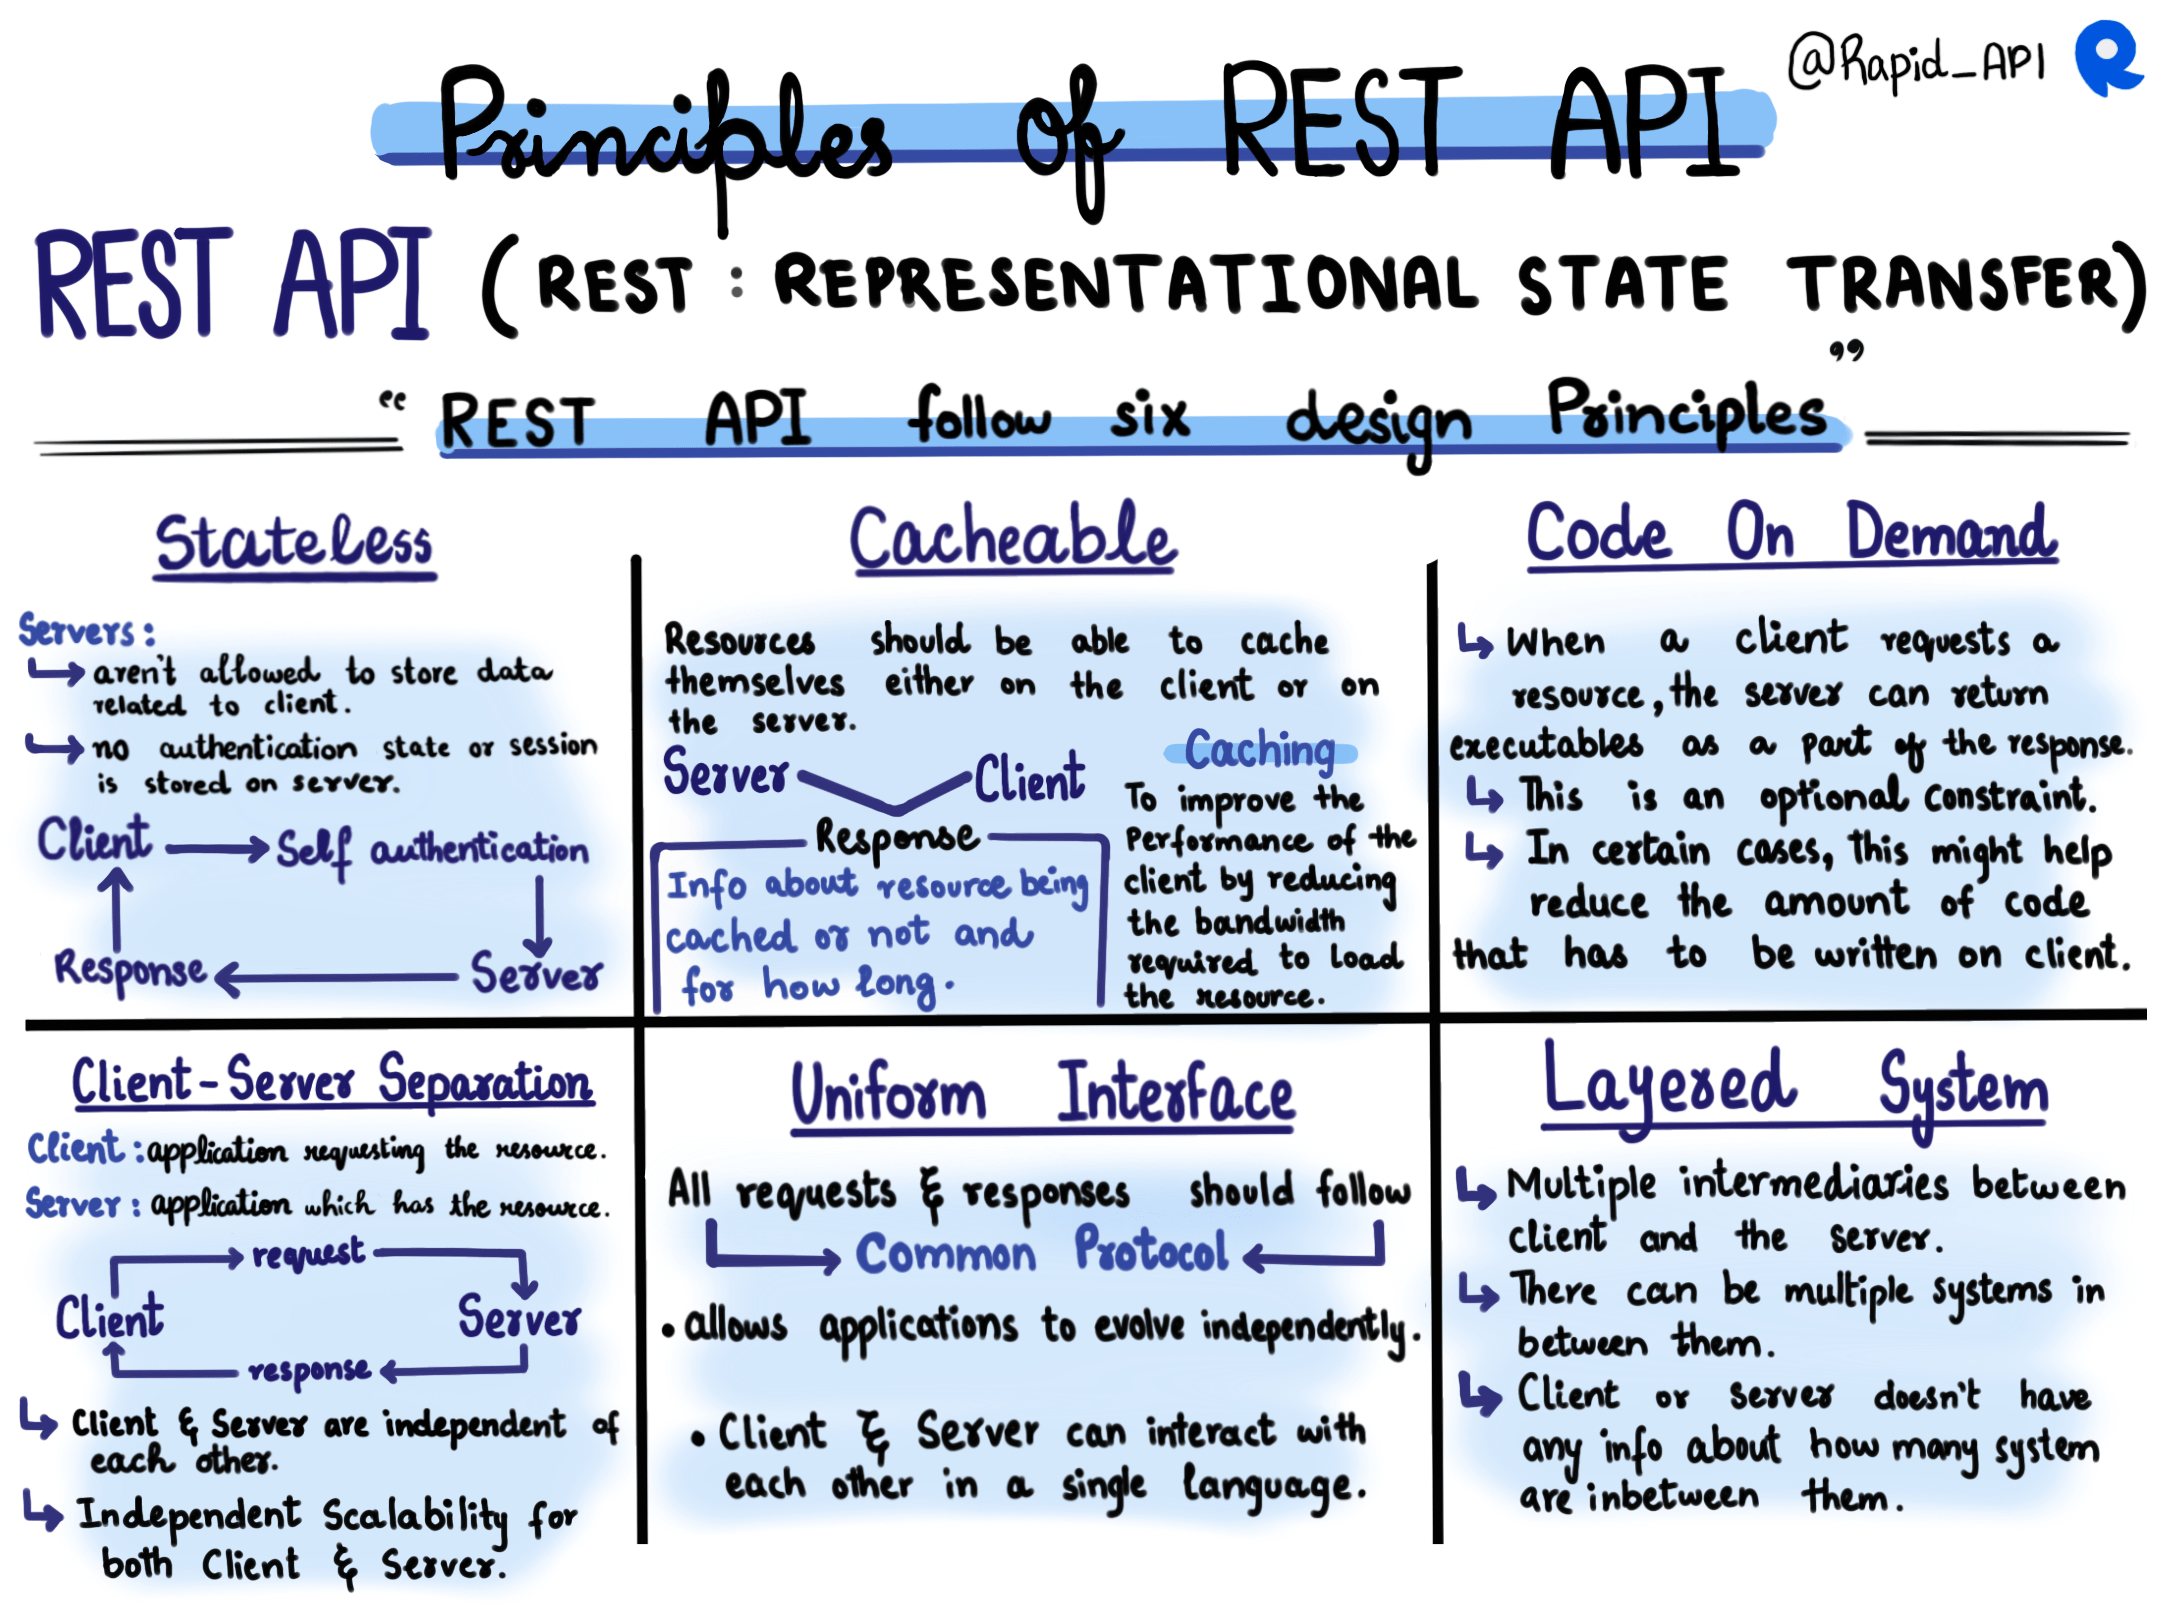 Principles of REST API
@Rapid_API
REST API (REST : REPRESENTATIONAL STATE TRANSFER)
“ REST API follow six design Principles ”
Stateless
Servers:
aren't allowed to store data
related to client.
no authentication state or session
is stored on server.
Client
Self authentication
Response
Server
Cacheable
Resources should be able to cache
themselves either on the client or on
the server.
Server
Client
Response
Info about resource being
cached or not and
for how long.
Caching
To improve the
Performance of the
client by reducing
the bandwidth
required to load
the resource.
Code On Demand
When a client requests a
resource, the server can return
executables as a part of the response.
This is an optional constraint.
In certain cases, this might help
reduce the amount of code
that has to be written on client.
Client-Server Separation
Client: application requesting the resource.
Server: application which has the resource.
request
Client
Server
response
Client & Server are independent of
each other.
Independent Scalability for
both Client & Server.
Uniform Interface
All requests & responses should follow
Common Protocol
• allows applications to evolve independently.
• Client & Server can interact with
each other in a single language.
Layered System
Multiple intermediaries between
client and the server.
There can be multiple systems in
between them.
Client or server doesn't have
any info about how many system
are inbetween them.